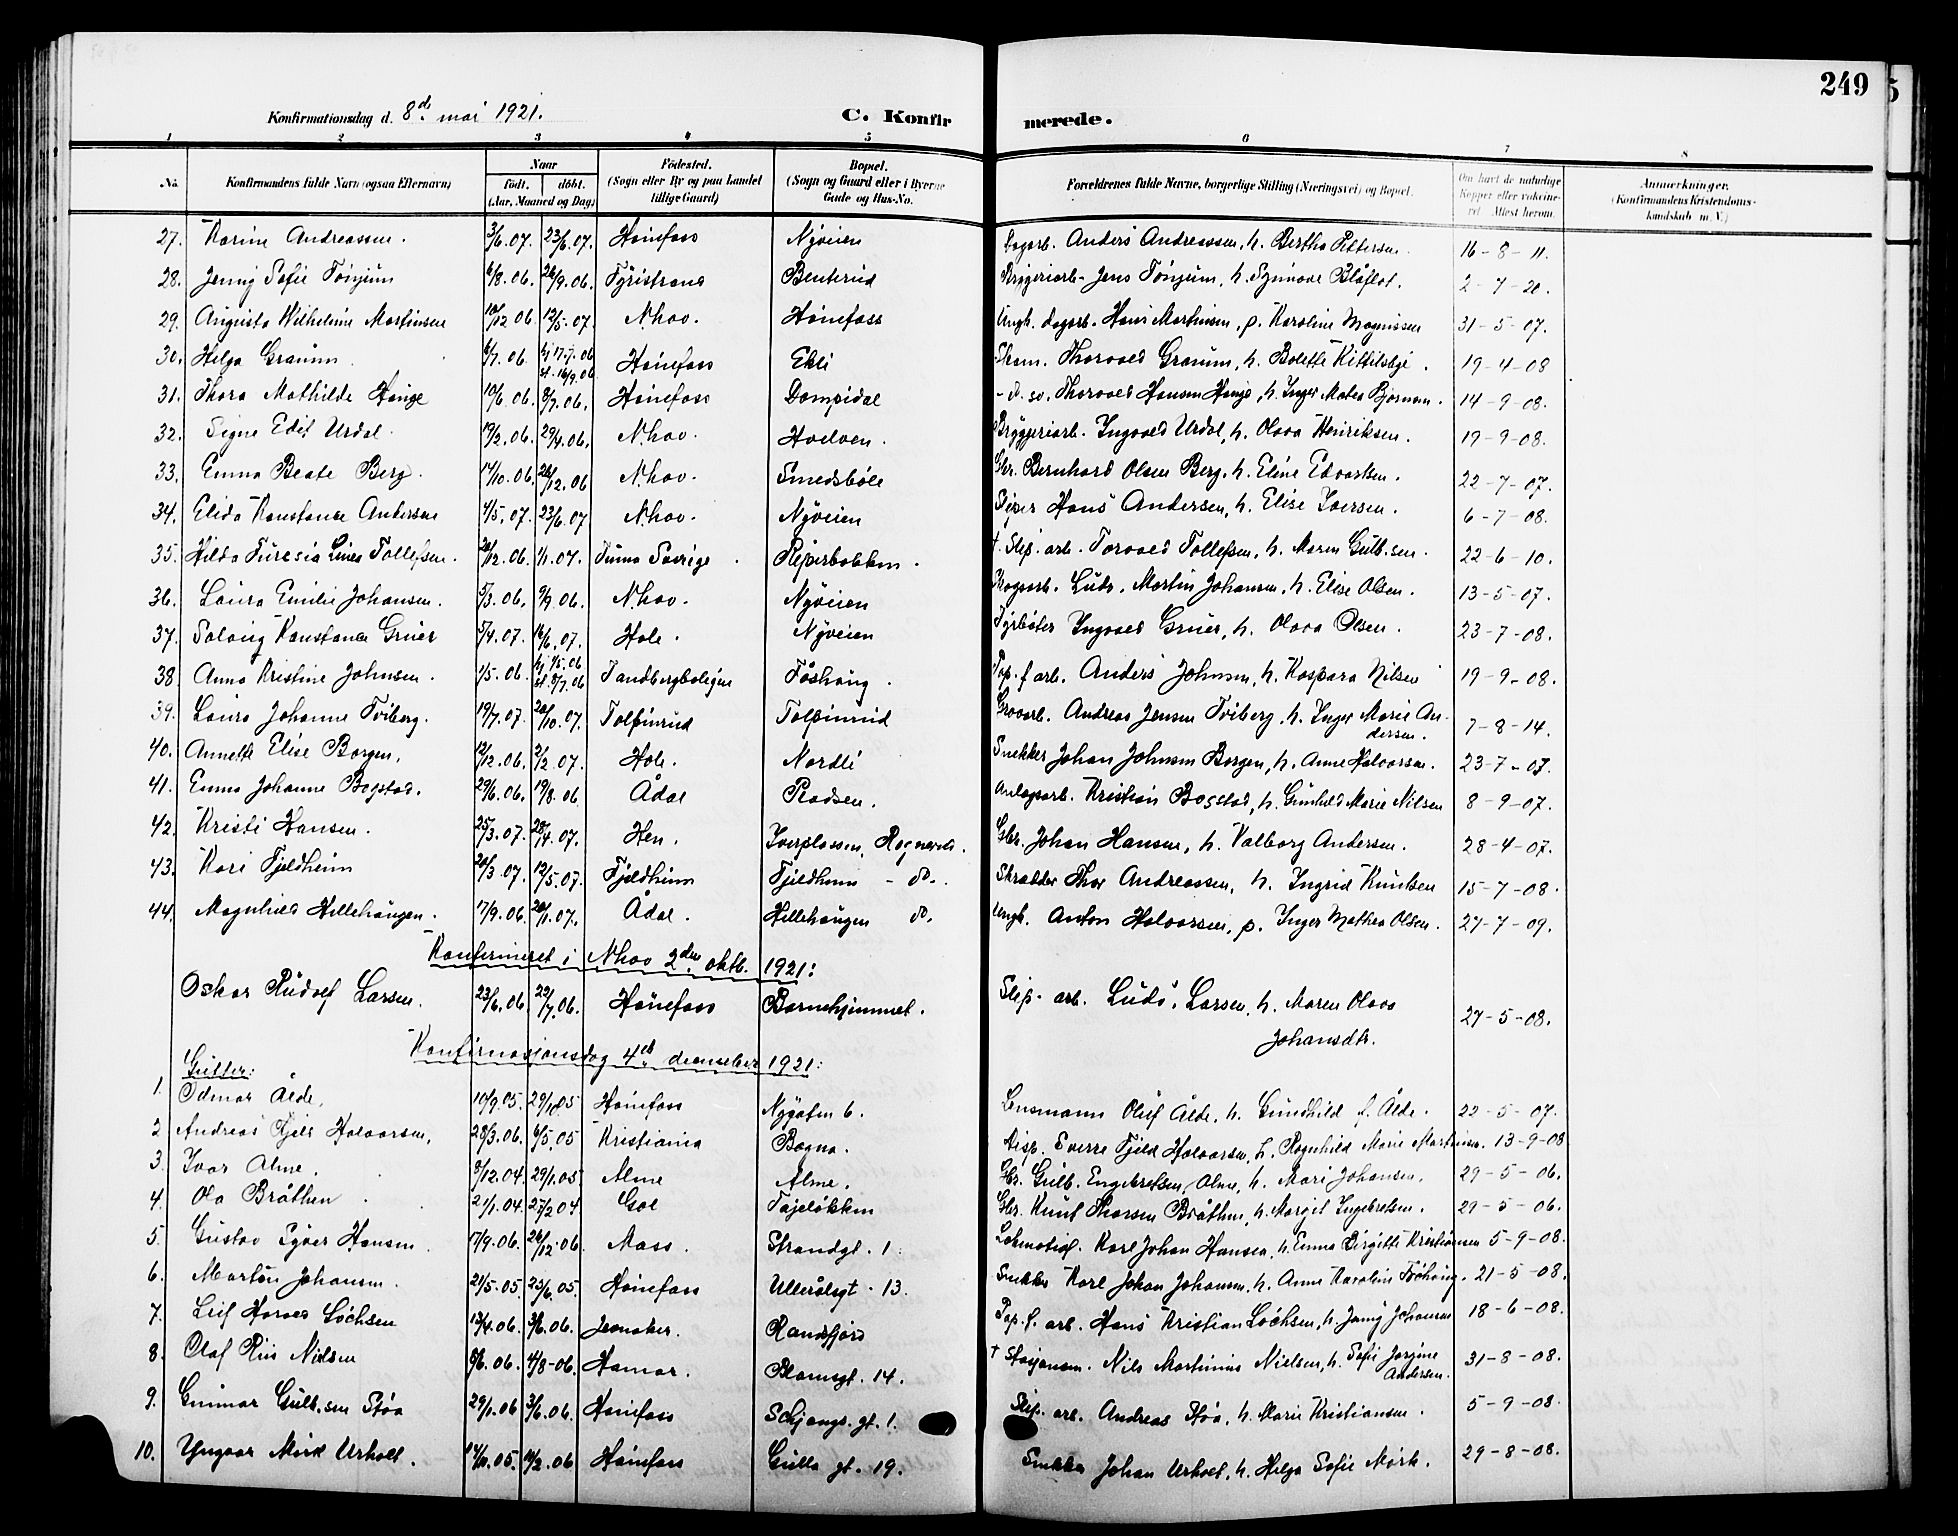 249
Konfirmationsdag d. 8de mai 1921.
C. Konfirmerede.
1 2 3 4 5 6 7 8
No. Konfirmandens fulde Navn (ogsaa Efternavn) Naar födt. döbt. (Aar, Maaned og Dag) Födested. (Sogn eller By og paa Landet tillige Gaard) Bopæl. (Sogn og Gaard eller i Byerne Gade og Hus-No. Forældrenes fulde Navne, borgerlige Stilling (Næringsvei) og Bopæl. Om havt de naturlige Kopper eller vakcineret. Attest herom. Anmerkninger. (Konfirmandens Kristendomskundskab m. V.)
27. Karine Andreassen. 3/6.07. 23/6.07. Hønefoss Nyveien Sagarb. Anders Andreassen, h. Bertha Pettersen. 16-8-11.
28. Jenny Sofie Tønjum 6/8.06. 26/9.06. Tyristrand Benterud Bryggeriarb. Jens Tønjum, h. Synnove Blåflat. 2-7-20.
29. Augusta Wilhelmine Martinsen 10/12 06 12/5-07. N.hov. Hønefoss Ungk. dagarb. Hans Martinsen, p. Karoline Magnussen 31-5-07.
30. Helga Granum 6/7.06 hj 17-7.06 st. 16/9.06 Hønefoss Ekli Skom. Thorvald Granum, h. Bolette Kittilsby. 19-4-08
31. Thora Mathilde Hønge 10/6 06. 8/7.06. Hønefoss Dompidal - d. sv. Thorvald Hansen Hønge, h. Inger Mathea Bjørnsen. 14-9-08.
32. Signe Edit Urdal. 19/2.06. 29/4.06. N.hov. Hvelven. Bryggeriarb. Ingvald Urdal, h. Olava Henriksen. 19-9-08.
33. Emma Beate Berg. 14/10.06. 26/12.06 N.hov. Smedsböle Gbr. Bernhard Olsen Berg, h. Eline Edvardsen. 22-7-07.
34. Elida Konstance Andersen 4/5.07. 23/6.07 N.hov. Nyveien Hans Andersen, h. Elise Iversen. 6-7-08.
35. Hilda Turesia Tollefsen. 20/12.06. 1/1.07. Sverige Pleperbakken. †. Slip. arb. Torvald Tollefsen, h. Maren Gulb.sen. 22-6-10.
36. Laura Emilie Johansen. 5/3.06. 9/9.06. N.hov. Nyveien Ludv. Martin Johansen, h. Elise Olsen. 13-5-07.
37. Solveig Konstance Gruer 5/4.07. 16/6.07. Hole. Nyveien Fyrbøter Ingvald Gruer, h. Olava Olsen. 23-7-08.
38 Anna Kristine Johnsen. 1/5.06. hj 1/5.06 st. 8/7.06 Tandbergboligen Föshaug. Pap. f arb. Anders Johnsen, h. Kaspara Nilsen 19-9-08.
39. Laura Johanne Tviberg. 19/7.07. 20/10.07. Tolpinrud Tolpinrud Andreas Jensen Tviberg, h. Inger Marie Andersen. 7-8-14.
40. Annette Elise Borgen. 12/12.06. 2/2.07. Hole. Nordli Snekker Johan Johnsen Borgen, h. Anne Halvorsen. 23-7-07.
41. Emma Johanne Bogstad. 29/6.06. 19/8.06 Ådal Pladsen. Anlægsarb. Kristian Bogstad, h. Gunhild Marie Nilsen 8-9-07.
42. Kristi Hansen. 25/3.07. 28/4.07. Hen. Iverplassen, Ragnerud. Gbr. Johan Hansen, h. Valborg Andersen. 28-4-07.
43. Kari Fjeldheim 20/3.07. 12/5.07. Fjeldheim Fjeldheim - do. Skrædder Thor Andreassen, h. Ingrid Knutsen 15-7-08.
44. Magnhild Hellehaugen. 17/9.06. 28/1.07. Ådal. Hellehaugen do. Ungk. Anton Halvorsen, p. Inger Mathea Olsen. 27-7-09.
Konfirmeret i N.hov 2den oktb. 1921:
Oskar Rudolf Larsen. 23/6.06. 22/7.06. Hønefoss Barnehjemmet. Slip. arb. Ludv. Larsen, h. Maren Olava Johansdtr. 27-5-08.
Konfirmasjonsdag 4de december 1921:
Gutter:
1. Idmar Ålde. 10/9.05. 29/10 05 Hønefoss Nygaten 6. Lensmann Oluf Ålde, h. Gundhild f. Ålde. 22-5-07.
2 Andreas Fjeld Halvorsen. 28/3.06. 6/5.05 Kristiania Bagna. Disp. Sverre Fjeld Halvorsen, h. Ragnhild Marie Martinsen. 13-9-08
3. Ivar Alme. 8/12.04. 29/1.05 Alme Alme. Gbr. Gulb. Engebretsen Alme, h. Mari Johansen. 29-5-06.
4. Ola Bråthen. 21/1.04. 27/2 04 Gol Tajeløkken Gbr. Knut Thorsen Bråthen, h. Margit Ingebretsen. 29-5-06.
5. Gustav Sgver Hansen. 17/9.06. 26/12.06. Moss. Strandgt. 1. Lokmotivf. Karl Johan Hansen, h. Emma Birgitte Kristiansen 5-9-08.
6. Martin Johansen. 21/5.05. 25/6.05. Hønefoss Ullerålsgt. 13. Snekker Karl Johan Johansen, h. Anne Karoline Föshaug. 21-5-08.
7. Leif Harald Løchsen 13/4.06. 3/6.06. Jevnaker. Randsfjord Pap. f. arb. Hans Kristian Løchsen, h. Jenny Johansen 18-6-08.
8. Olaf Riis Nielsen 8/6.06. 4/8-06. Hamar. Blomsgt. 14. † Stasjonsm. Nils Martinius Nielsen, h. Sofie Jorgine Andersen. 31-8-08.
9. Gunnar Gulb.sen Støa 29/1.06 3/6.06. Hønefoss Schjongs. gt. 1. Slip. arb. Andreas Støa, h. Marie Kristiansen. 5-9-08.
10. Yngvar Mørk Urholt. 14/10.05. 11/2.06 Hønefoss Gulla gt. 19. Snekker Johan Urholt, h. Helga Sofie Mørk. 29-8-08.